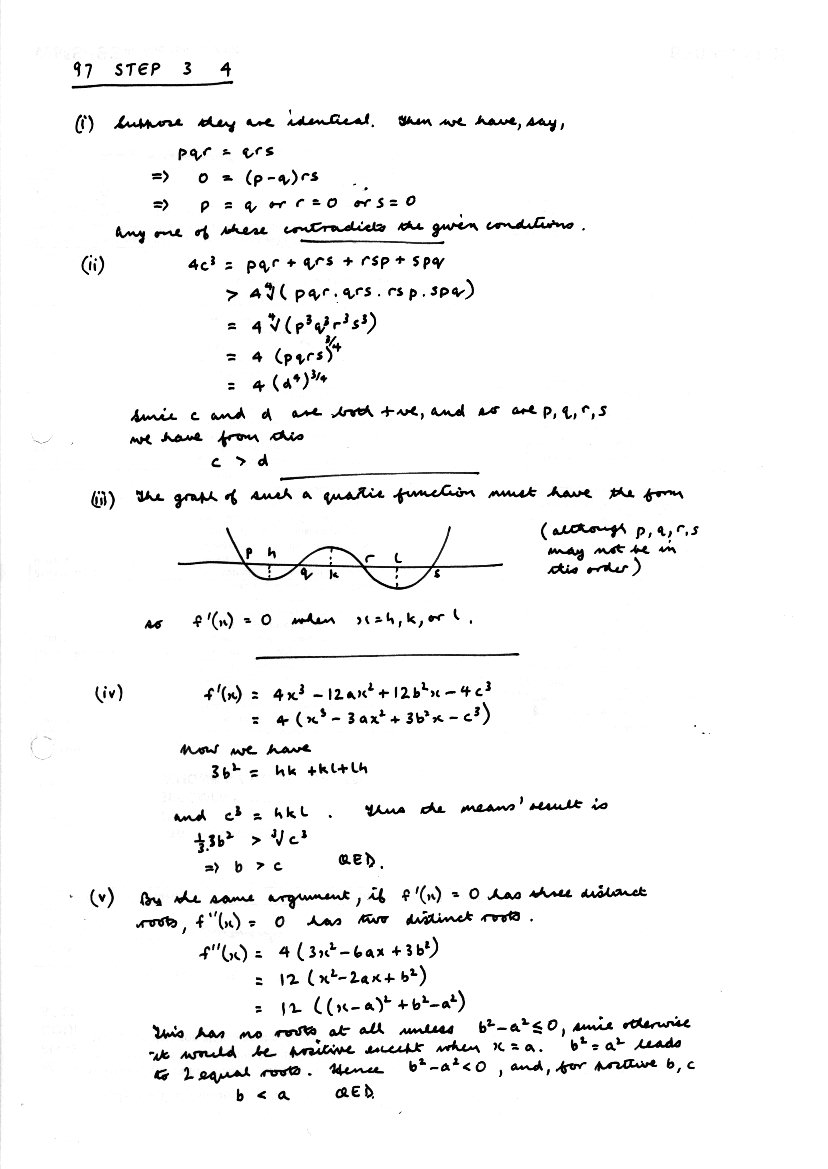 97 STEP 3 4
(i) Suppose they are identical. Then we have, say,
pqr = qrs
=> 0 = (p-q)rs
=> p = q or r = 0 or s = 0
Any one of these contradicts the given conditions.
(ii) 4c³ = pqr + qrs + rsp + spq
> 4 ∜(pqr.qrs.rsp.spq)
= 4 ∜(p³q³r³s³)
= 4 (pqrs)^3/4
= 4 (d⁴)^3/4
Since c and d are both +ve, and so are p, q, r, s
we have from this
c > d
(iii) The graph of such a quartic function must have the form
p h q k r l s
(although p, q, r, s
may not be in
this order)
so f'(x) = 0 when x = h, k, or l.
(iv) f'(x) = 4x³ - 12ax² + 12b²x - 4c³
= 4 (x³ - 3ax² + 3b²x - c³)
Now we have
3b² = hk + kl + lh
and c³ = hkl . Thus the means' result is
⅓.3b² > ∛c³
=> b > c QED.
(v) By the same argument, if f'(x) = 0 has three distinct
roots, f''(x) = 0 has two distinct roots.
f''(x) = 4 (3x² - 6ax + 3b²)
= 12 (x² - 2ax + b²)
= 12 ((x-a)² + b² - a²)
This has no roots at all unless b² - a² ≤ 0, since otherwise
it would be positive except when x = a. b² = a² leads
to 2 equal roots. Hence b² - a² < 0, and, for positive b, c
b < a QED.